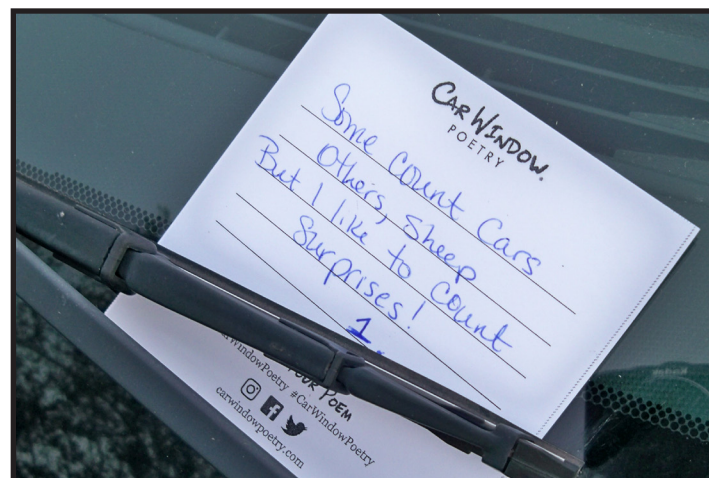 CAR WINDOW
POETRY
Some Count Cars
Others, Sheep
But I like to count
Surprises!
1.
YOUR POEM
WindowPoetry #CarWindowPoetry
carwindowpoetry.com